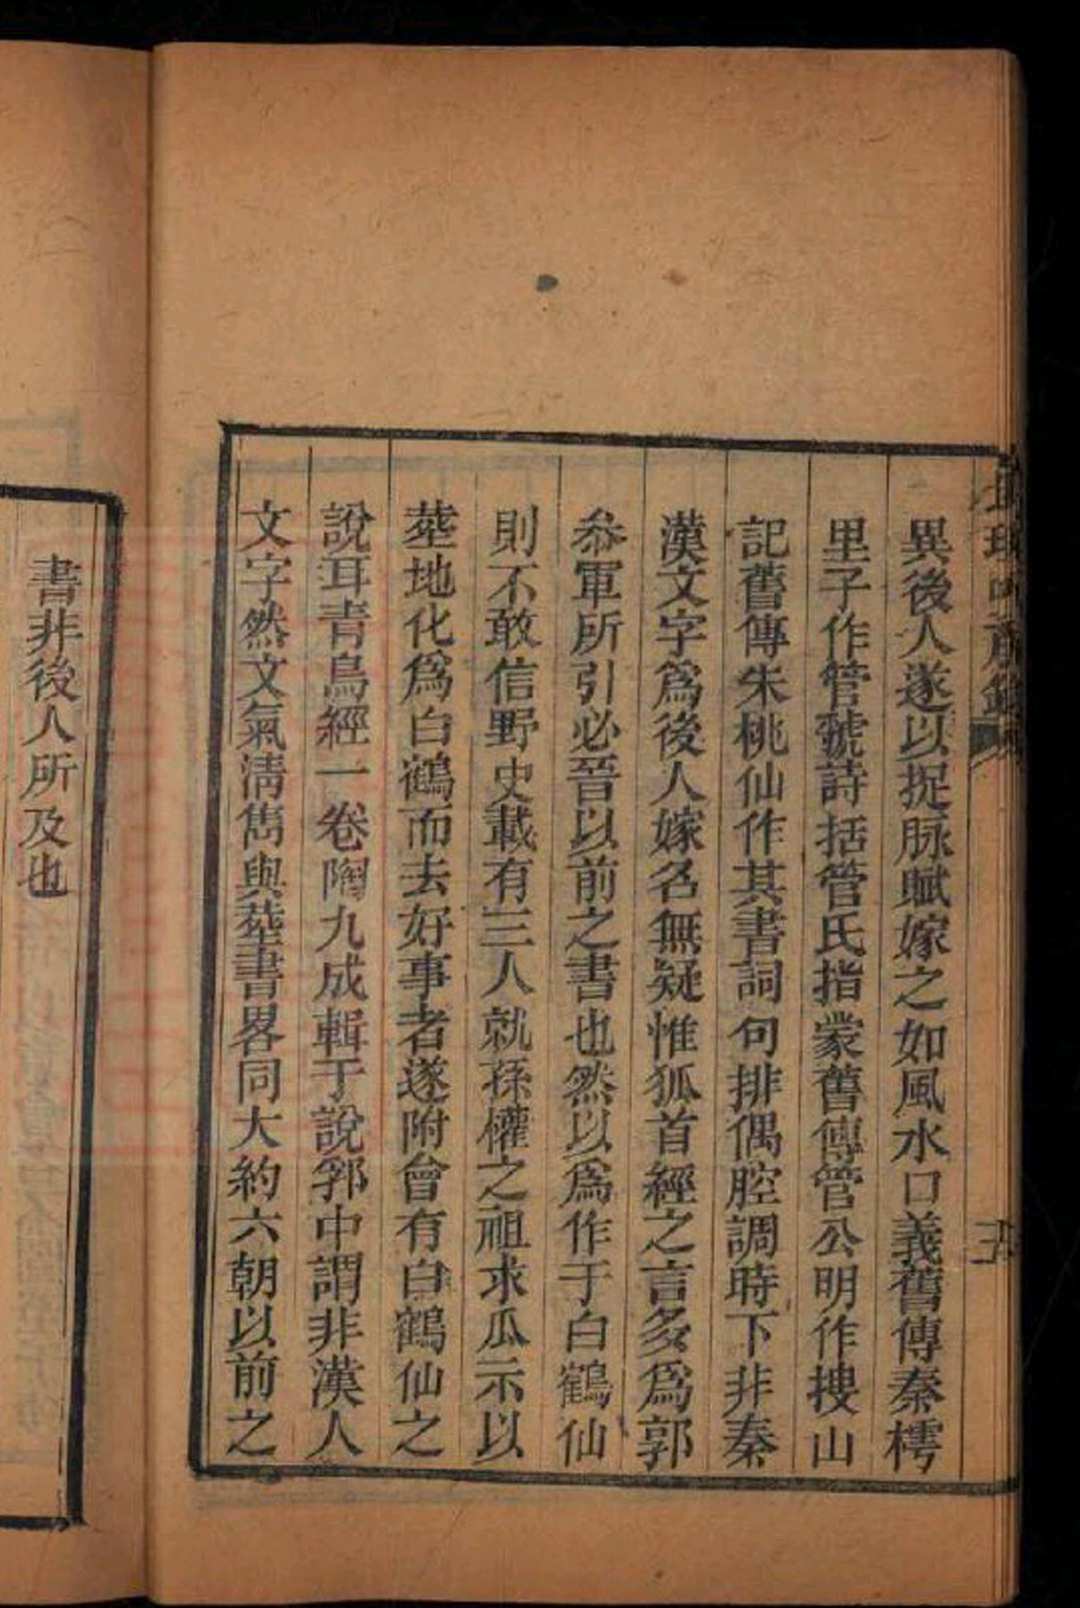 異後人遂以捉脉賦嫁之如風水口義舊傳秦樗
里子作管虢詩括管氏指蒙舊傳管公明作捜山
記舊傳朱桃仙作其書詞句排偶腔調時下非秦
漢文字爲後人嫁名無疑惟狐首經之言多爲郭
叅軍所引必晉以前之書也然以爲作于白鶴仙
則不敢信野史載有三人就孫權之祖求瓜示以
塟地化爲白鶴而去好事者遂附會有白鶴仙之
說耳青烏經一卷陶九成輯于說郛中謂非漢人
文字然文氣清雋與塟書畧同大約六朝以前之
書非後人所及也